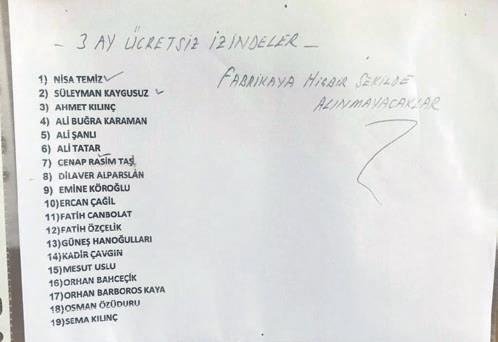 - 3 AY ÜCRETSİZ İZİNDELER -
FABRİKAYA HİÇBİR ŞEKİLDE
ALINMAYACAKLAR
1) NİSA TEMİZ
2) SÜLEYMAN KAYGUSUZ
3) AHMET KILINÇ
4) ALİ BUĞRA KARAMAN
5) ALİ ŞANLI
6) ALİ TATAR
7) CENAP RASİM TAŞ
8) DİLAVER ALPARSLAN
9) EMİNE KÖROĞLU
10)ERCAN ÇAĞIL
11)FATİH CANBOLAT
12)FATİH ÖZÇELİK
13)GÜNEŞ HANOĞULLARI
14)KADİR ÇAVGIN
15)MESUT USLU
16)ORHAN BAHCEÇİK
17)ORHAN BARBOROS KAYA
18)OSMAN ÖZÜDURU
19)SEMA KILINÇ